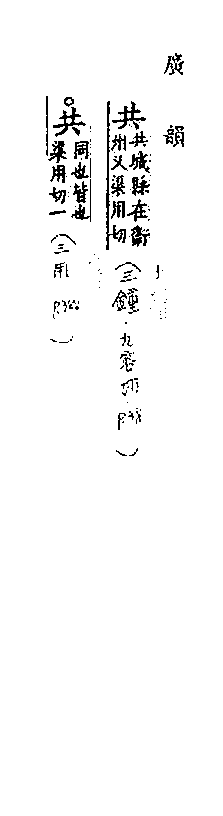 廣韻
共 共城縣在衛州又渠用切 (三鍾·九容切 P38)
。共 同也皆也渠用切一 (三用 P344)